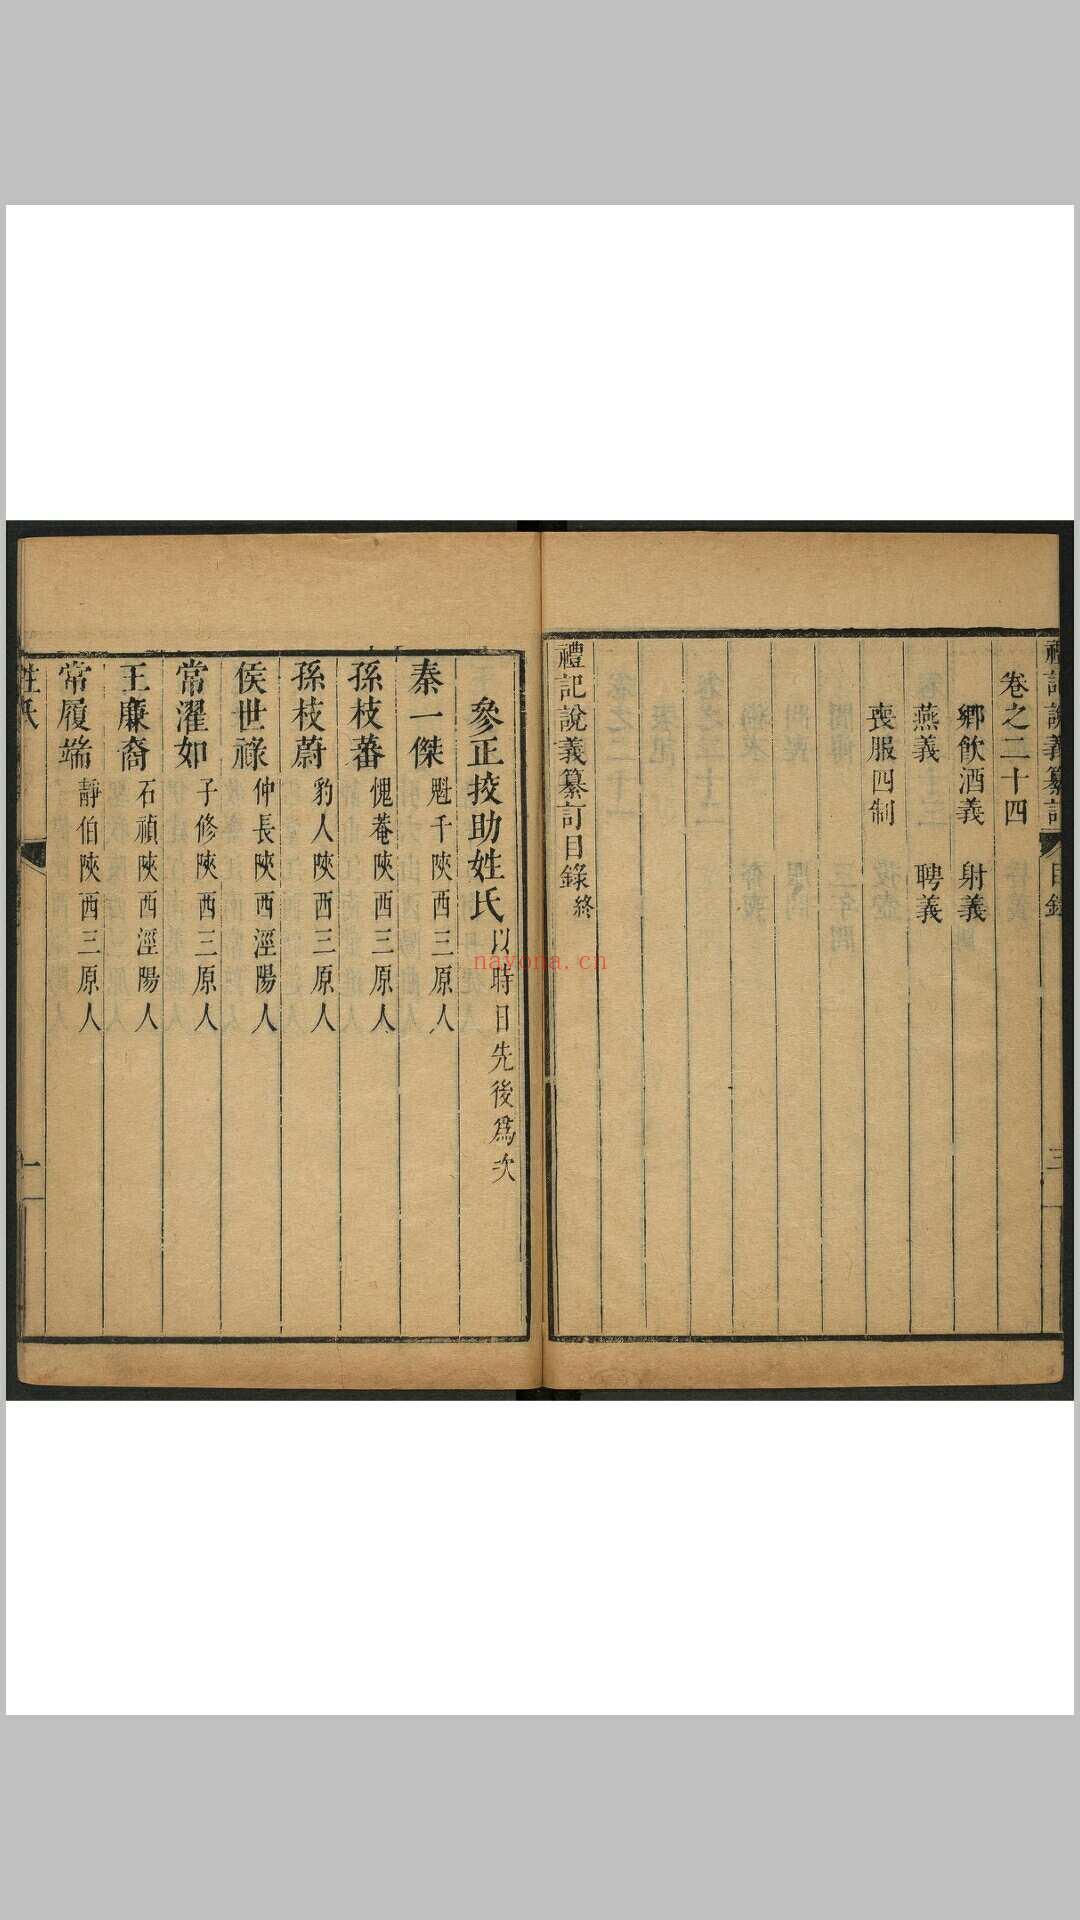 禮記說義纂訂 目錄 三
卷之二十四
鄉飲酒義 射義
燕義 聘義
喪服四制
禮記說義纂訂目錄終
參正挍助姓氏以時日先後爲次
秦一傑 魁千陝西三原人
孫枝蕃 愧菴陝西三原人
孫枝蔚 豹人陝西三原人
侯世祿 仲長陝西涇陽人
常濯如 子修陝西三原人
王廉裔 石禎陝西涇陽人
常履端 靜伯陝西三原人
姓氏 一
nayona.cn